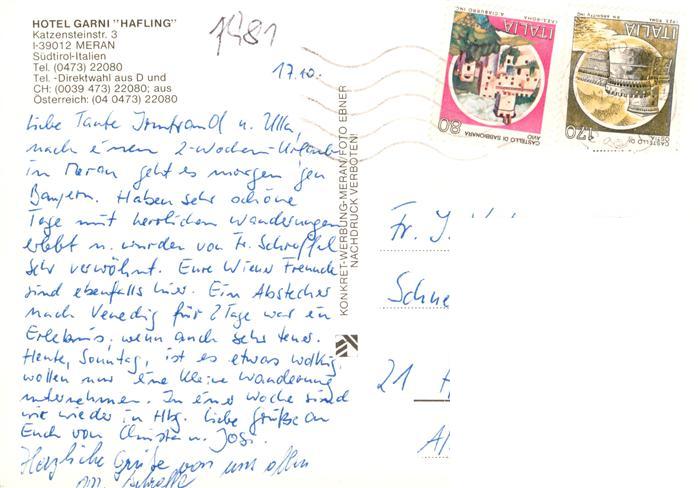 HOTEL GARNI "HAFLING"
Katzensteinstr. 3
I-39012 MERAN
Südtirol-Italien
Tel. (0473) 22080
Tel. -Direktwahl aus D und
CH: (0039 473) 22080; aus
Österreich: (04 0473) 22080
1981
17.10.
Liebe Tante Irmtraud u. Ulla,
nach einem 2-Wochen-Urlaub
in Meran geht es morgen gen
Bayern. Haben sehr schöne
Tage mit herrlichen Wanderungen
erlebt u. wurden von Fr. Schroffel
sehr verwöhnt. Eure Wiener Freunde
sind ebenfalls hier. Ein Abstecher
nach Venedig für 2 Tage war ein
Erlebnis, wenn auch sehr teuer.
Heute, Sonntag, ist es etwas wolkig,
wollen nur eine kleine Wanderung
unternehmen. In einer Woche sind
wir wieder in Hbg. Liebe Grüße an
Euch von Christa u. Josi.
Herzliche Grüße von uns allen
KONKRET-WERBUNG-MERAN/FOTO EBNER
NACHDRUCK VERBOTEN!
ITALIA
80
CASTELLO DI SABBIONARA
AVIO
I.P.Z.S. ROMA
ITALIA
170
CASTELLO DI
OSTIA
I.P.Z.S. ROMA
Fr. I.
Schne
21 H